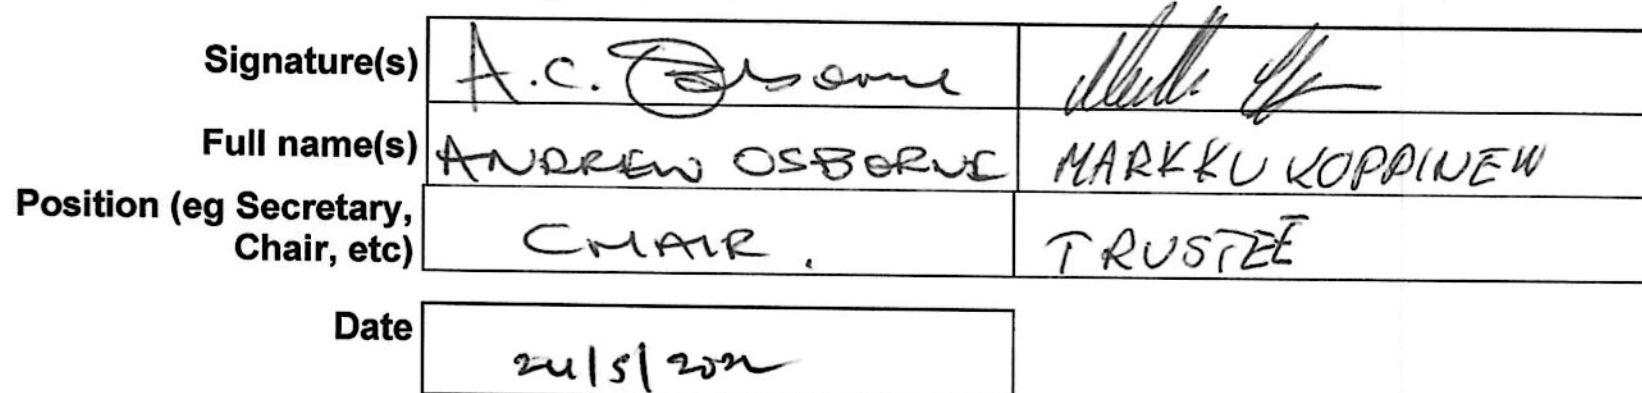 Signature(s) A.C. Osborne
Full name(s) ANDREW OSBORNE MARKKU KOPPINEN
Position (eg Secretary, Chair, etc) CHAIR. TRUSTEE
Date 24/5/2022